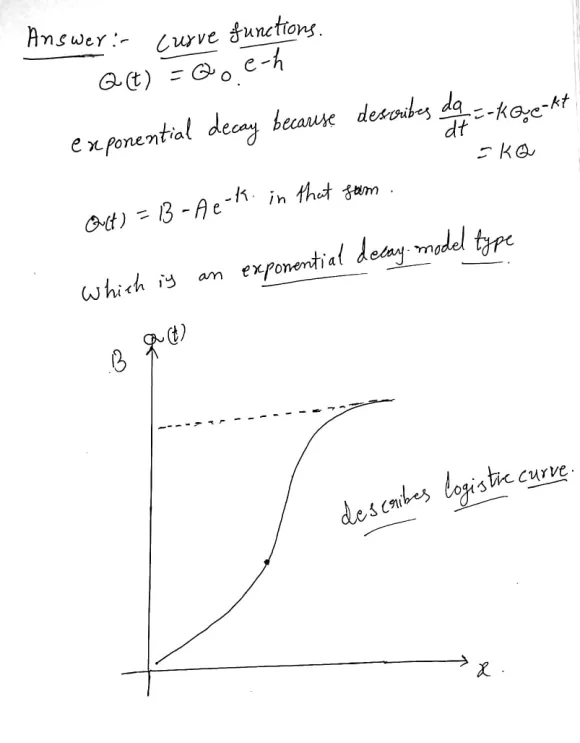 Answer :- curve functions.
Q(t) = Q₀ e-h
exponential decay because describes dq/dt = -kQ₀e^-kt
= kQ
Q(t) = B - Ae^-k. in that form.
which is an exponential decay model type
Q(t)
B
describes logistic curve.
x.